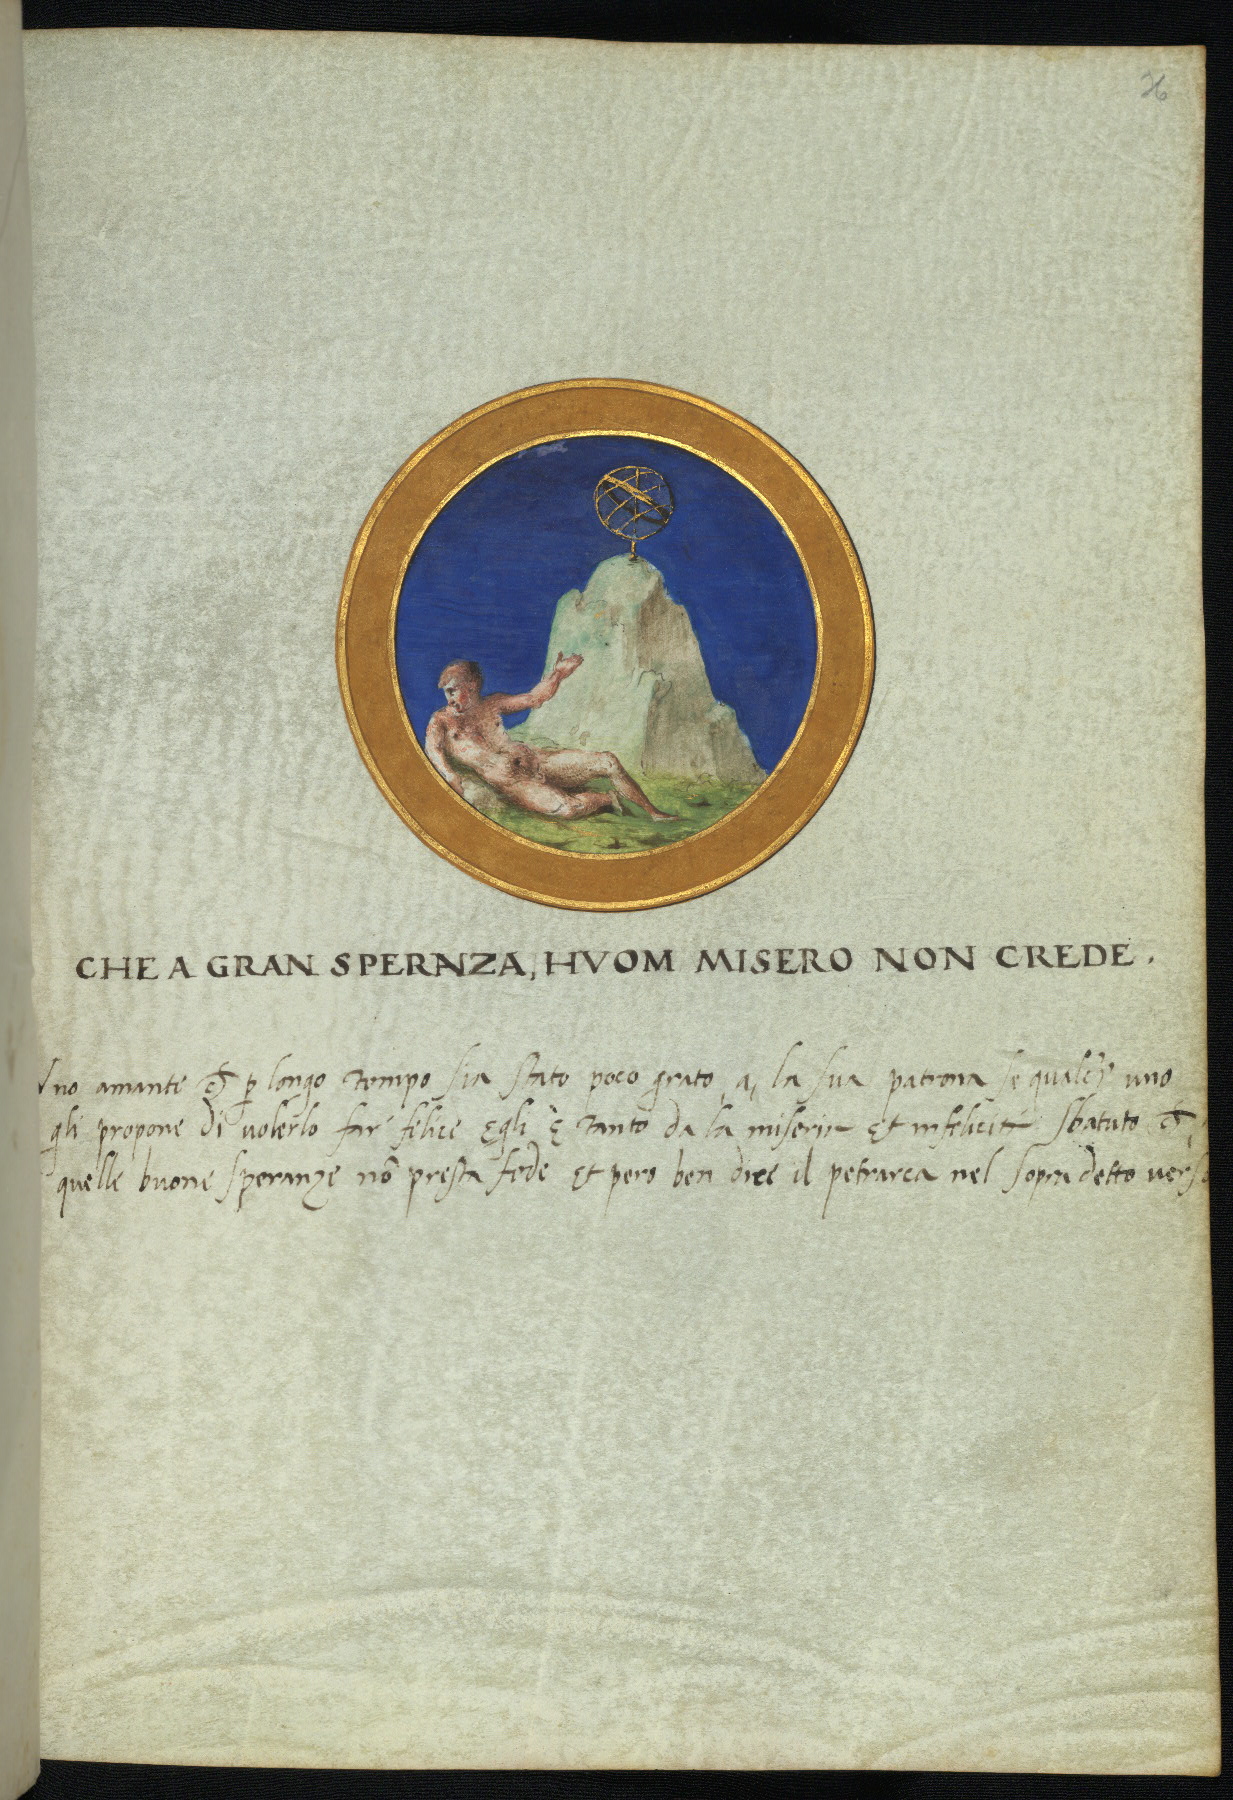 26
CHE A GRAN SPERNZA, HVOM MISERO NON CREDE.
Vno amante ch̄ ꝑ longo tempo sia stato poco grato, a, la sua patrona se qualch̄ uno
gli propone di volerlo far felice Egli è tanto da la miseria Et infelicità sbatuto ch̄, a,
quelle buone speranze nō presta fede Et pero ben dice il petrarca nel sopra detto verso